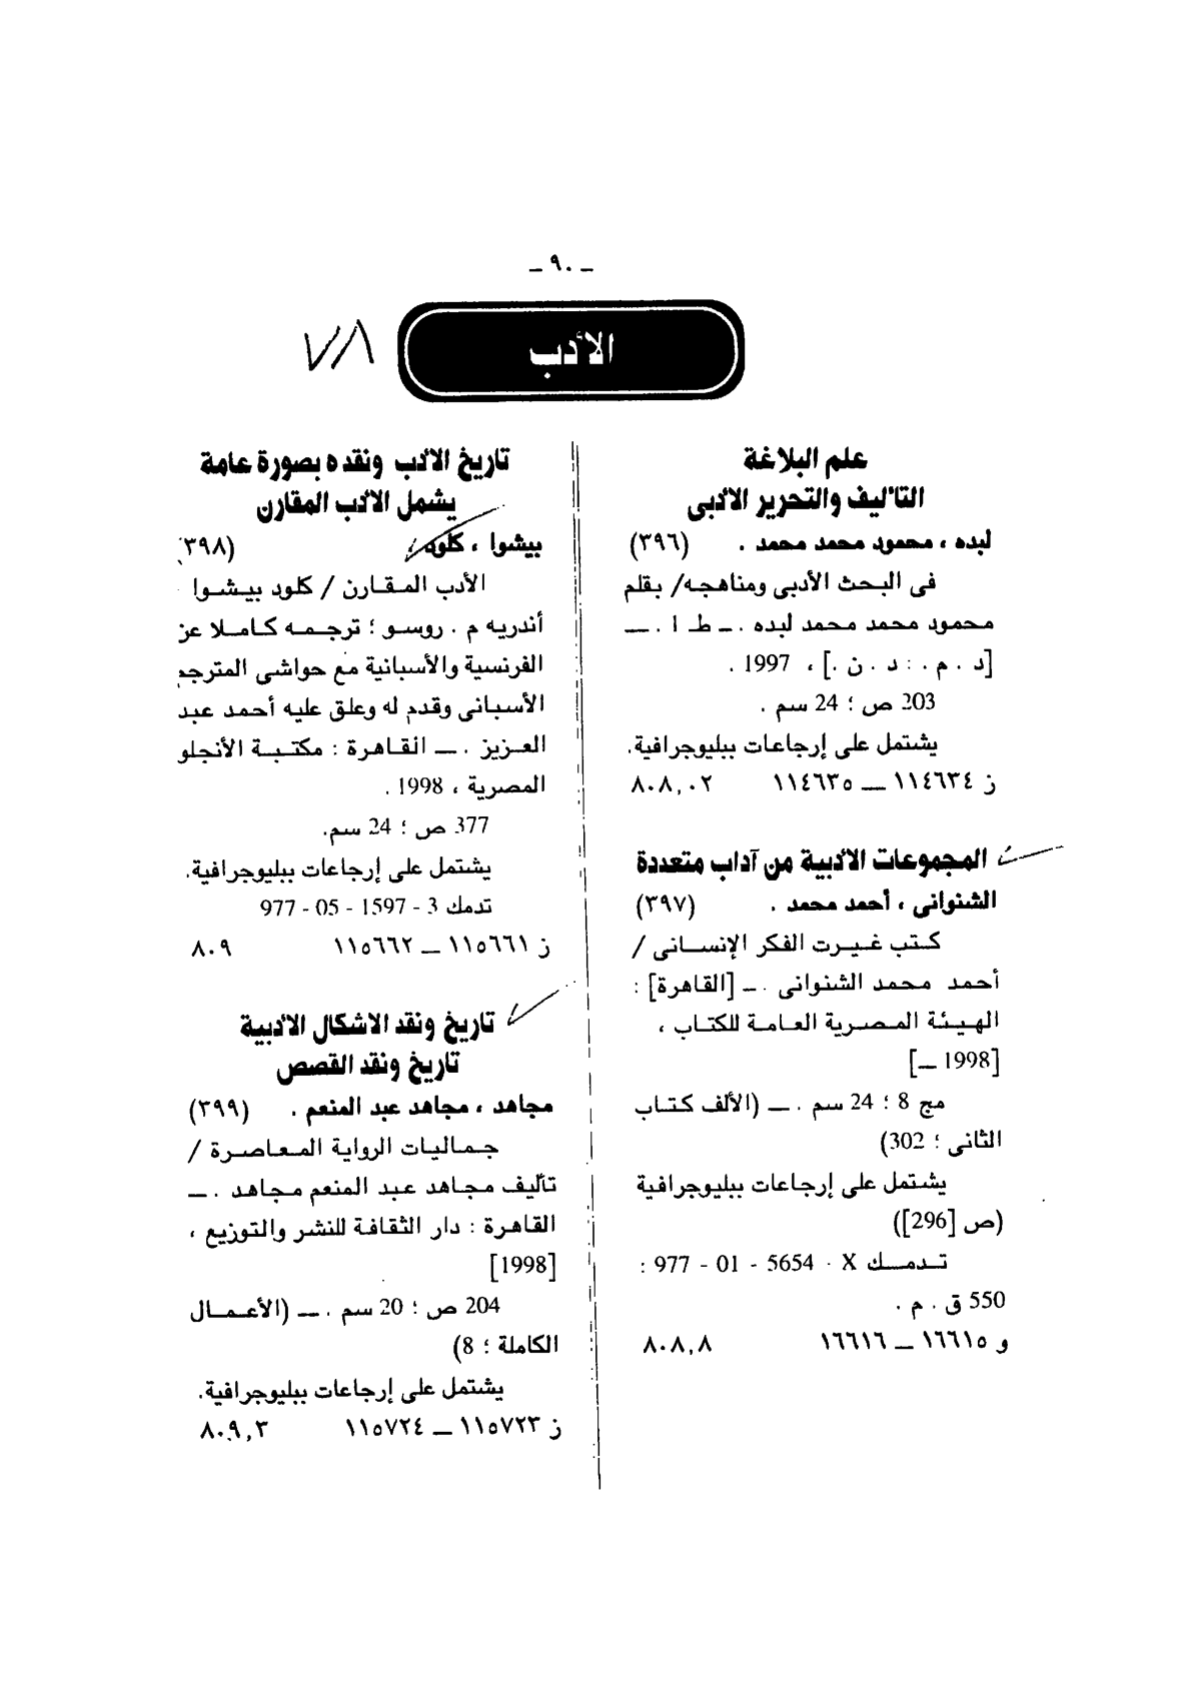 ـ ٩٠ ـ
٧٨
الأدب
علم البلاغة
التأليف والتحرير الأدبى
لبده ، محمود محمد محمد . (٣٩٦)
فى البحث الأدبى ومناهجه/ بقلم
محمود محمد محمد لبده . ـ ط ١ . ــ
[د . م . : د . ن .] ، 1997 .
203 ص ؛ 24 سم .
يشتمل على إرجاعات ببليوجرافية.
ز ١١٤٦٣٤ ــ ١١٤٦٣٥ ٨٠٨,٠٢
المجموعات الأدبية من آداب متعددة
الشنوانى ، أحمد محمد . (٣٩٧)
كتب غيرت الفكر الإنسانى /
أحمد محمد الشنوانى . ـ [القاهرة] :
الهيئة المصرية العامة للكتاب ،
[1998 ــ]
مج 8 ؛ 24 سم . ــ (الألف كتاب
الثانى ؛ 302)
يشتمل على إرجاعات ببليوجرافية
(ص [296])
تدمك 977 - 01 - 5654 - X :
550 ق . م .
و ١٦٦١٥ ــ ١٦٦١٦ ٨٠٨,٨
تاريخ الأدب ونقده بصورة عامة
يشمل الأدب المقارن
بيشوا ، كلود ، (٣٩٨)
الأدب المقارن / كلود بيشوا
أندريه م . روسو ؛ ترجمه كاملا عن
الفرنسية والأسبانية مع حواشى المترجم
الأسبانى وقدم له وعلق عليه أحمد عبد
العزيز . ــ القاهرة : مكتبة الأنجلو
المصرية ، 1998 .
377 ص ؛ 24 سم.
يشتمل على إرجاعات ببليوجرافية.
تدمك 3 - 1597 - 05 - 977
ز ١١٥٦٦١ ــ ١١٥٦٦٢ ٨٠٩
تاريخ ونقد الاشكال الأدبية
تاريخ ونقد القصص
مجاهد ، مجاهد عبد المنعم . (٣٩٩)
جماليات الرواية المعاصرة /
تأليف مجاهد عبد المنعم مجاهد . ــ
القاهرة : دار الثقافة للنشر والتوزيع ،
[1998]
204 ص ؛ 20 سم . ــ (الأعمال
الكاملة ؛ 8)
يشتمل على إرجاعات ببليوجرافية.
ز ١١٥٧٢٣ ــ ١١٥٧٢٤ ٨٠٩,٣